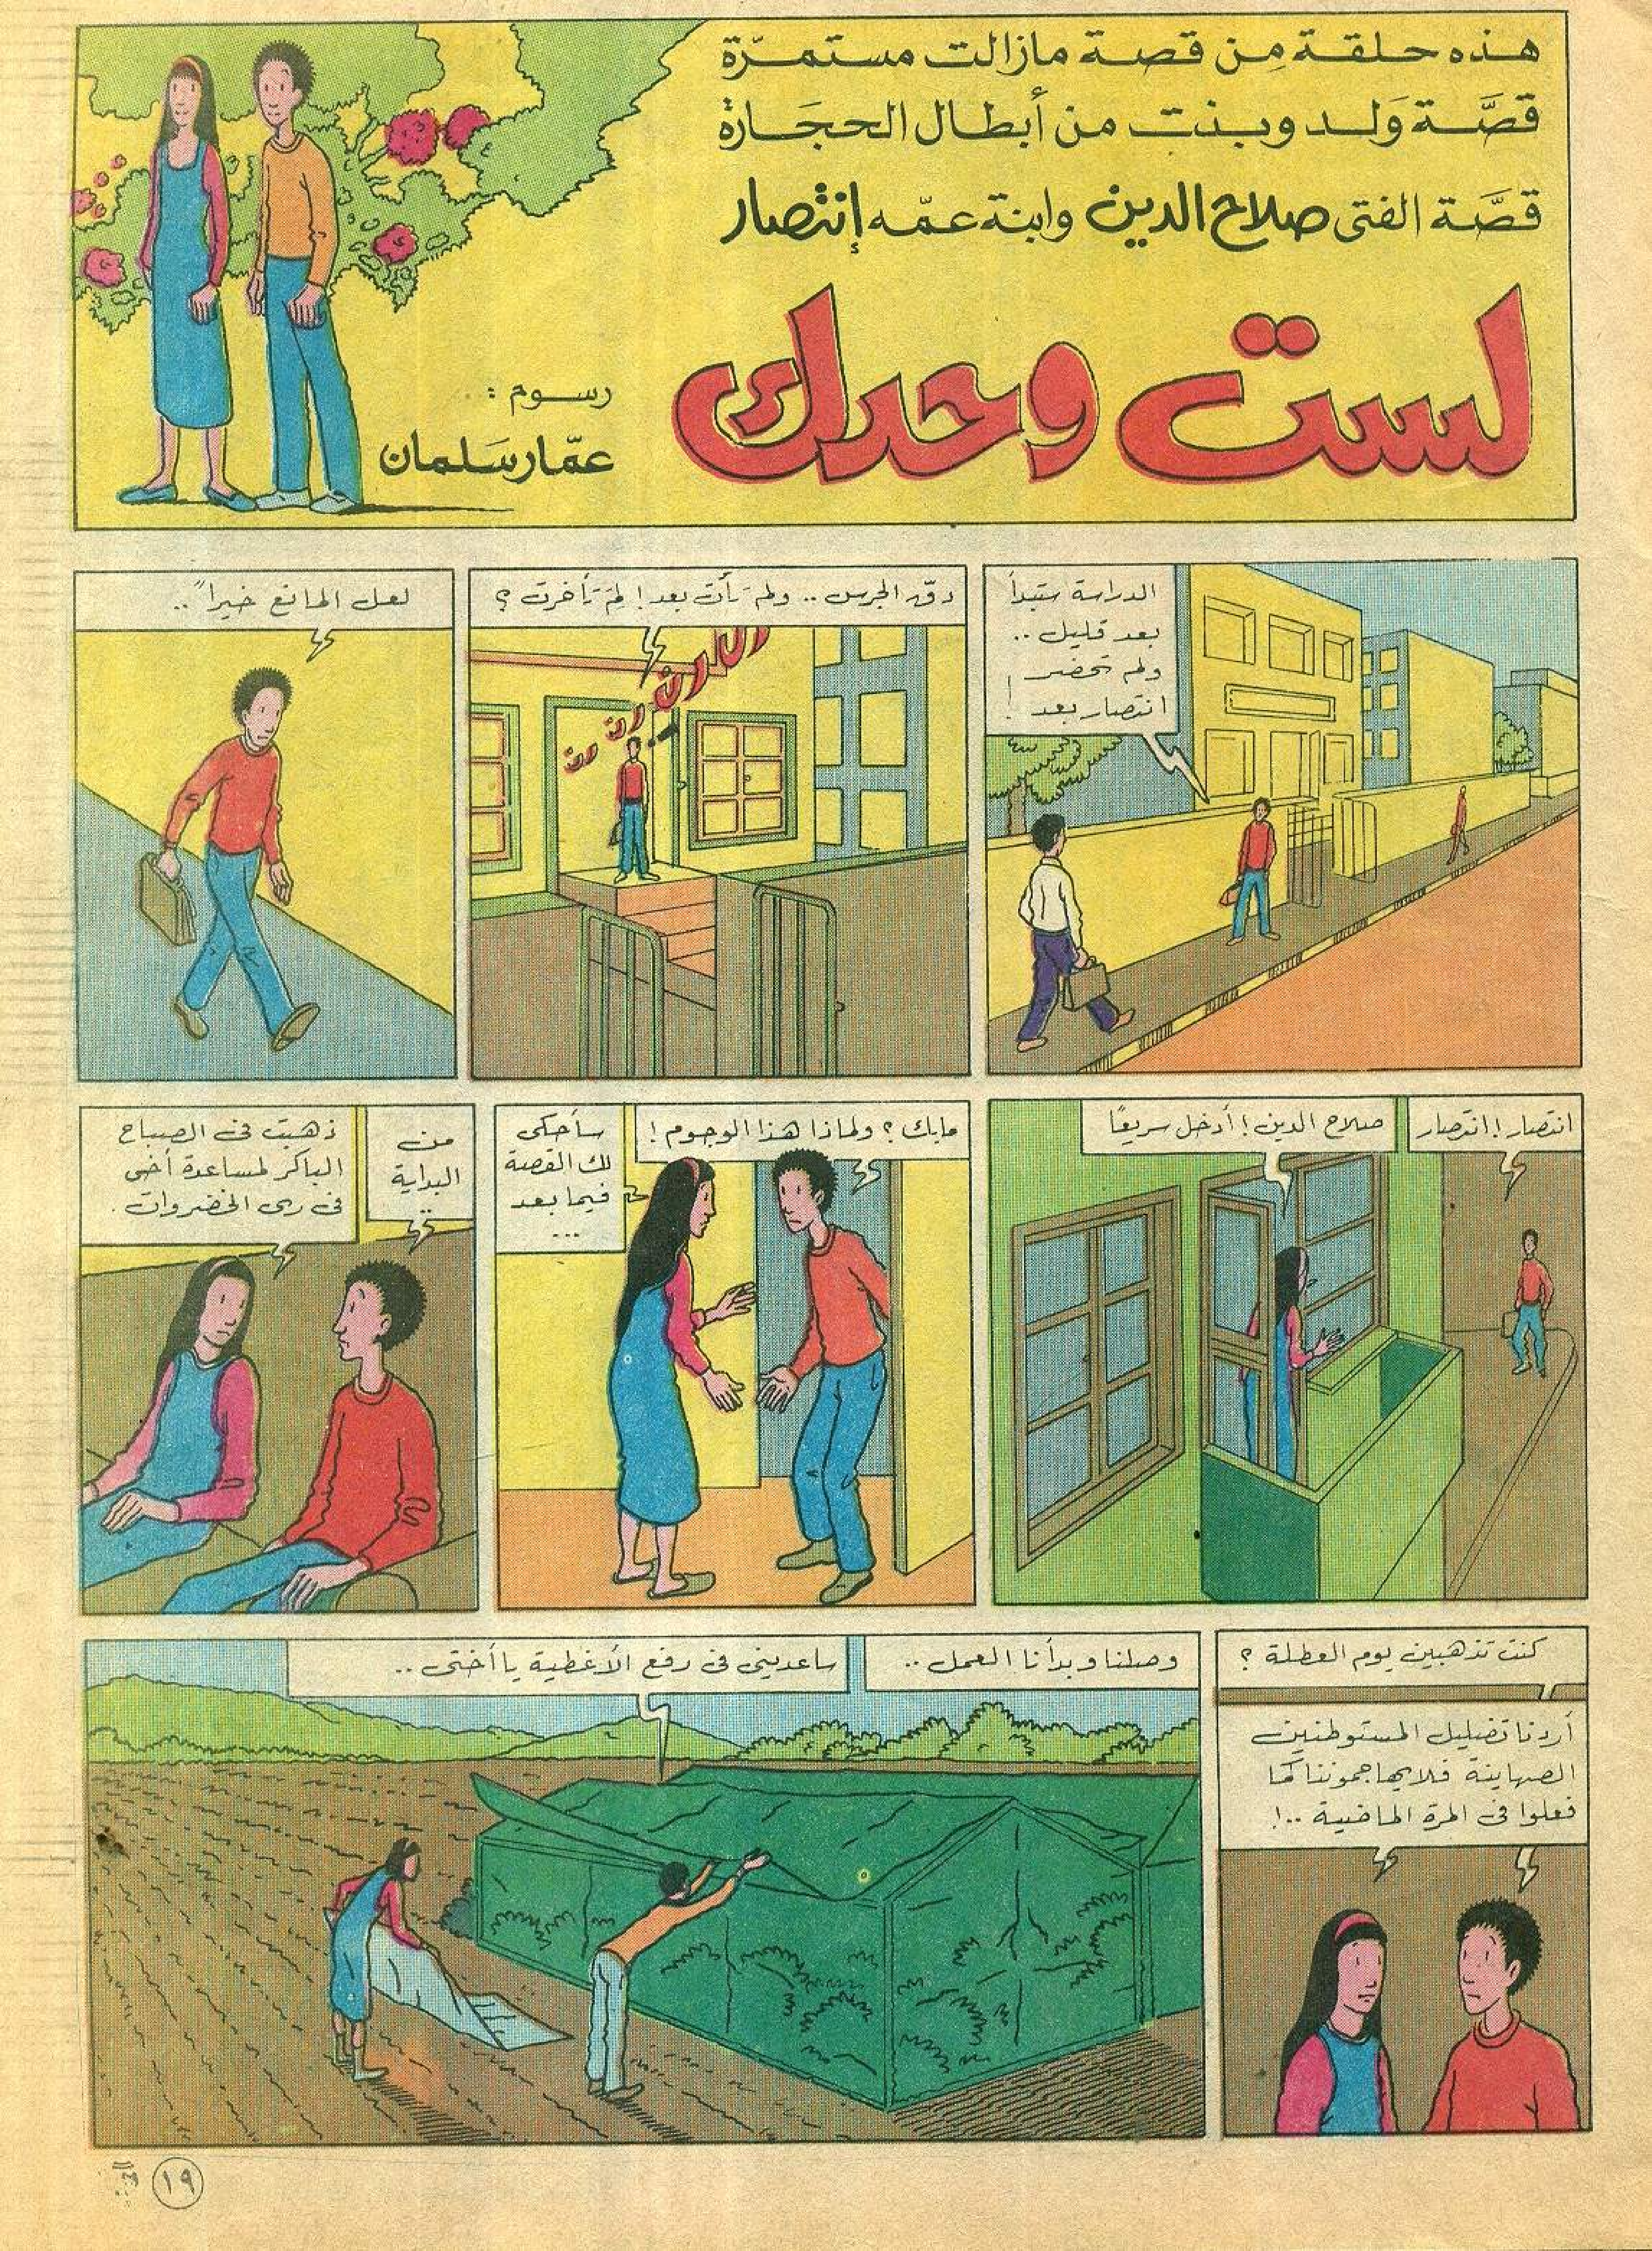 هذه حلقة من قصة مازالت مستمرّة
قصَّة وَلد وبنت من أبطال الحجَارة
قصَّة الفتى صلاح الدين وابنة عمّه إنتصار
لست وحدك
رسوم :
عمّار سَلمان
الدراسة ستبدأ
بعد قليل ..
ولم تحضر
انتصار بعد !
دقّ الجرس .. ولم تأت بعد ! لِمَ تأخرت ؟
رن رن رن رن
لعل المانع خيراً ..
انتصار ! انتصار
صلاح الدين ! أدخل سريعًا
مابك ؟ ولماذا هذا الوجوم !
سأحكى
لك القصة
فيما بعد
...
من
البداية
..
ذهبت فى الصباح
الباكر لمساعدة أخى
فى رى الخضروات .
كنت تذهبين يوم العطلة ؟
أردنا تضليل المستوطنين
الصهاينة فلا يهاجموننا كما
فعلوا فى المرة الماضية ..!
وصلنا وبدأنا العمل ..
ساعدينى فى رفع الأغطية يا أختى ..
١٩